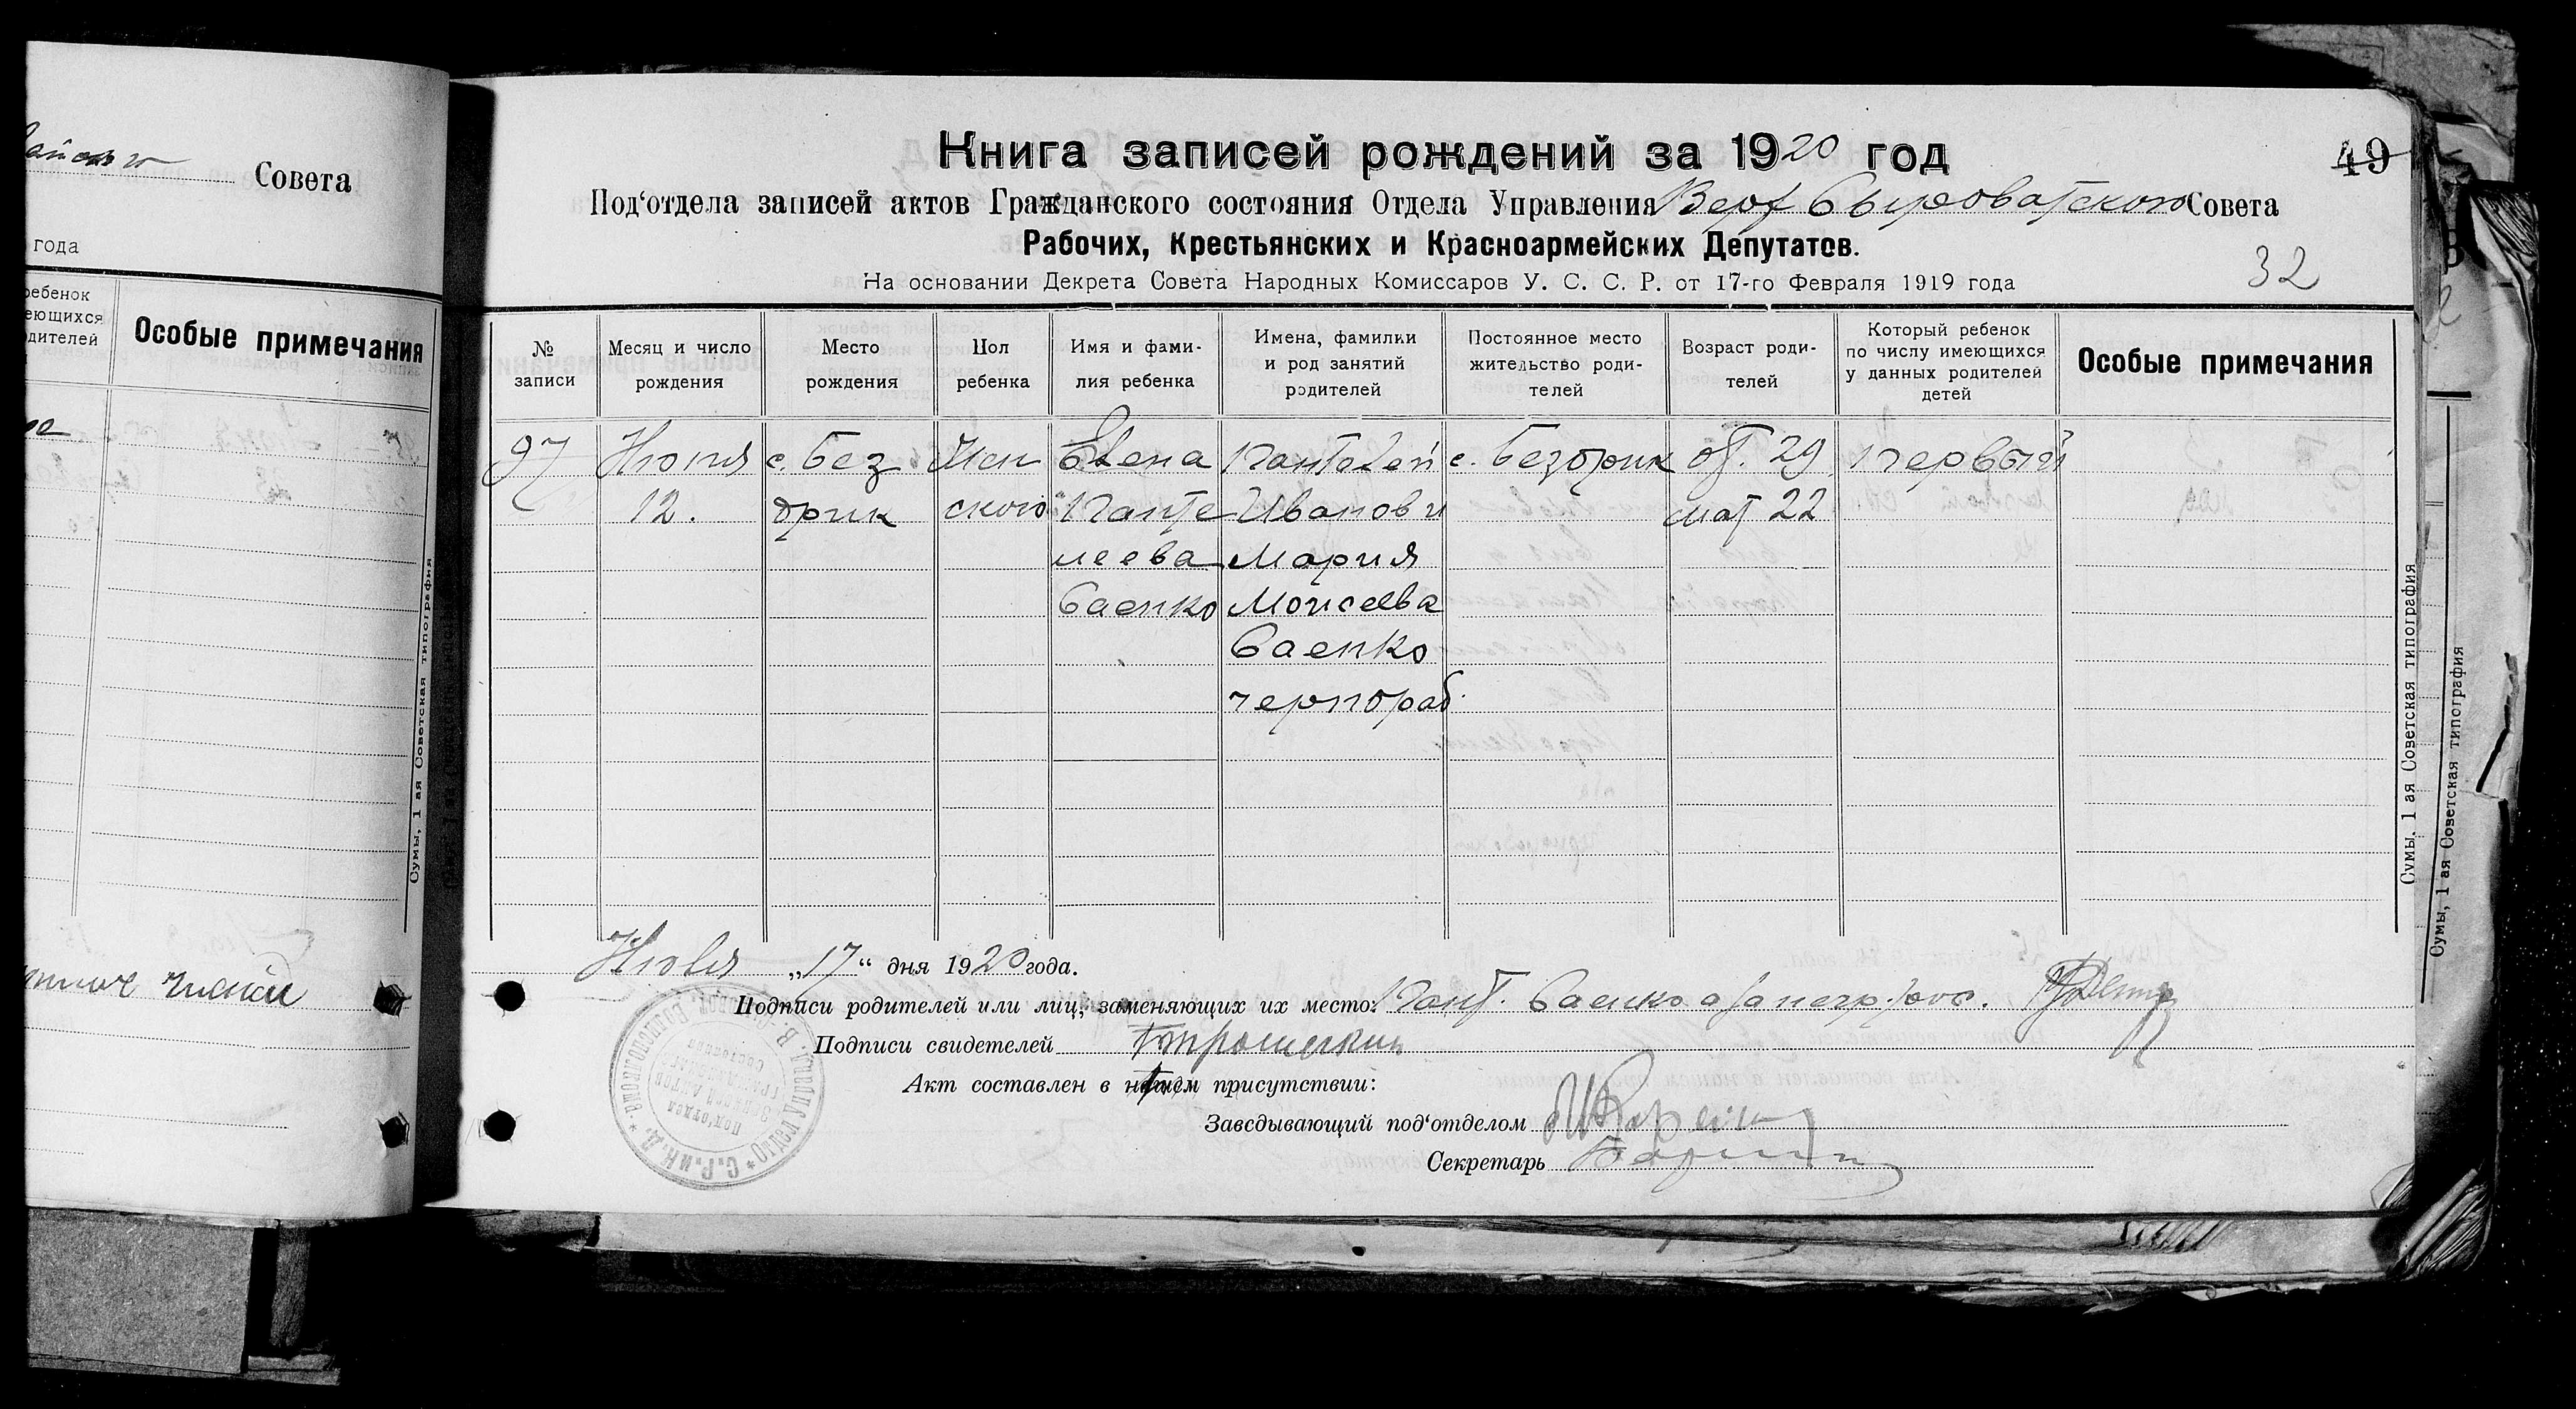 Совета
года
ребенок
еющихся
дителей
Особые примечания
Сумы, 1 ая Советская типография
Книга записей рождений за 1920 год
49
Под‘отдела записей актов Гражданского состояния Отдела Управления Верх Сыроватского Совета
Рабочих, Крестьянских и Красноармейских Депутатов.
32
На основании Декрета Совета Народных Комиссаров У. С. С. Р. от 17-го Февраля 1919 года
№ записи
Месяц и число рождения
Место рождения
Пол ребенка
Имя и фами-
лия ребенка
Имена, фамилки
и род занятий
родителей
Постоянное место
жительство роди-
телей
Возраст роди-
телей
Который ребенок
по числу имеющихся
у данных родителей
детей
Особые примечания
97 Июня с. Без Жен Елена Пантелей с. Бездрик от. 29 первый
12. дрик ского Панте Иванов и мат 22
леева Мария
Саенко Моисеева
Саенко
чернораб.
Сумы, 1 ая Советская типография
Сумы, 1 ая Советская типография
Июля „17“ дня 1920 года.
Подписи родителей или лиц, заменяющих их место: Пант. Саенко а за негр.
Подписи свидетелей
Акт составлен в нашем присутствии:
Заведывающий под‘отделом
Секретарь